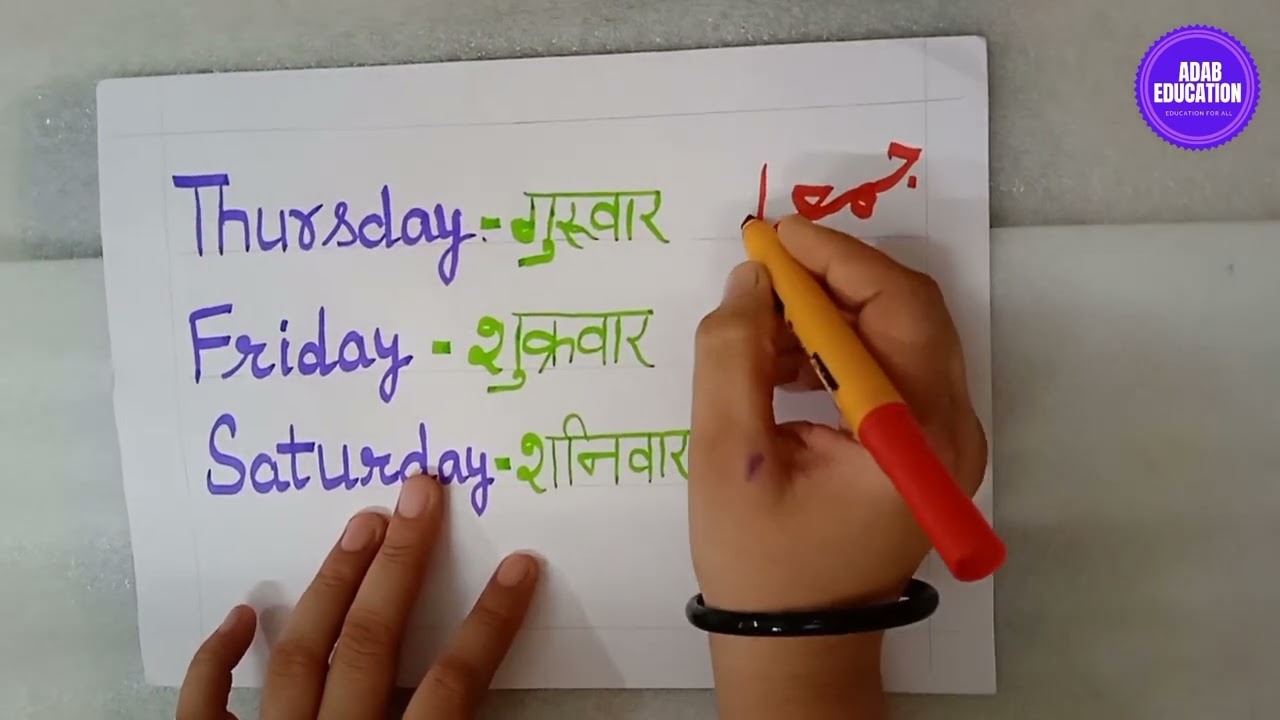 ADAB
EDUCATION
EDUCATION FOR ALL
Thursday - गुरूवार جمعه
Friday - शुक्रवार
Saturday - शनिवार